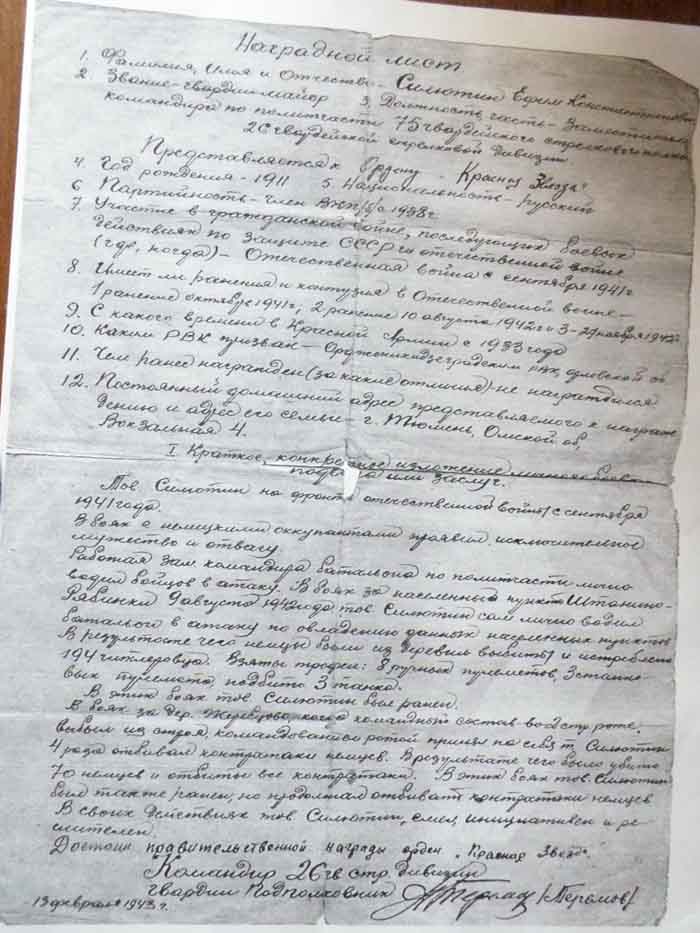 Наградной лист
1. Фамилия, Имя и Отчество - Силютин Ефим Константинович
2 Звание - гвардии майор 3. Должность, часть - Заместитель
командира по политчасти 75 гвардейского стрелкового полка
26 гвардейской стрелковой дивизии
Представляется к Ордену "Красная Звезда"
4. Год рождения - 1911 5. Национальность - русский
6 Партийность - член ВКП/б/ с 1938 г
7. Участие в гражданской войне, последующих боевых
действиях по защите СССР и отечественной войне
(где, когда) - Отечественная война с сентября 1941 г
8. Имеет ли ранения и контузия в Отечественной войне -
1 ранение октябрь 1941 г; 2 ранение 10 августа 1942 г и 3 - 29 ноября 1942 г
9. С какого времени в Красной Армии с 1933 года
10. Каким РВК призван - Орджоникидзеградским РВК, орловской об
11. Чем ранее награжден (за какие отличия) не награждался
12. Постоянный домашний адрес представляемого к награж
дению и адрес его семьи - г. Тюмень, Омской об,
Вокзальная 4.
I. Краткое, конкретное изложение личного боевого
подвига или заслуг.
Тов. Силютин на фронте отечественной войны с сентября
1941 года.
В боях с немецкими оккупантами проявил исключительное
мужество и отвагу
Работая зам. командира батальона по политчасти лично
водил бойцов в атаку. В боях за населенный пункт Штанино-
Рябинки 9 августа 1942 года тов. Силютин сам лично водил
батальон в атаку по овладению данных населенных пунктов
В результате чего немцы были из деревни выбиты и истреблено
194 гитлеровца. Взяты трофеи: 8 ручных пулеметов, 3 станко-
вых пулемета, подбито 3 танка.
В этих боях тов. Силютин был ранен.
В боях за дер. Жеребцово, когда командный состав в стр. роте
выбыл из строя, командование ротой принял на себя т. Силютин
4 раза отбивал контратаки немцев. В результате чего было убито
70 немцев и отбиты все контратаки. В этих боях тов. Силютин
был также ранен, но продолжал отбивать контратаки немцев
В своих действиях тов Силютин, смел, инициативен и ре-
шителен.
Достоин правительственной награды орден "Красная Звезда".
Командир 26 гв стр. дивизии
гвардии Подполковник
13 февраля 1943 г.